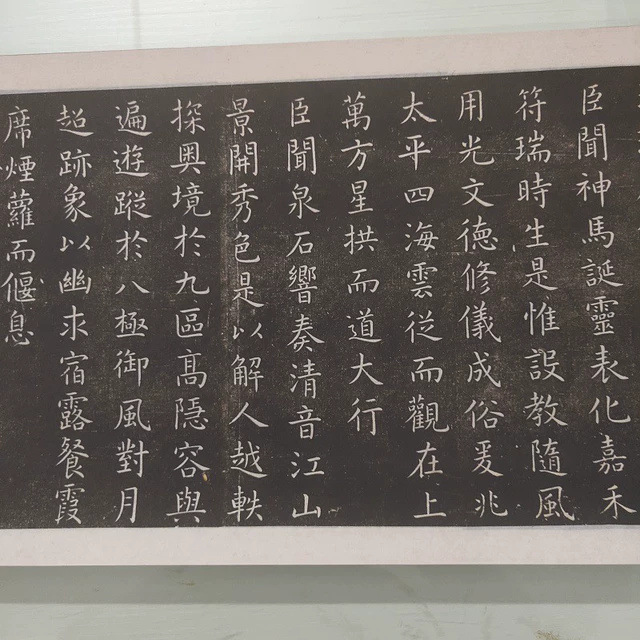 臣聞神馬誕靈表化嘉禾
符瑞時生是惟設教隨風
用光文德修儀成俗爰兆
太平四海雲從而觀在上
萬方星拱而道大行
臣聞泉石響奏清音江山
景開秀色是以解人越軼
探奥境於九區高隱容與
遍遊蹤於八極御風對月
超跡象以幽求宿露餐霞
席煙蘿而偃息